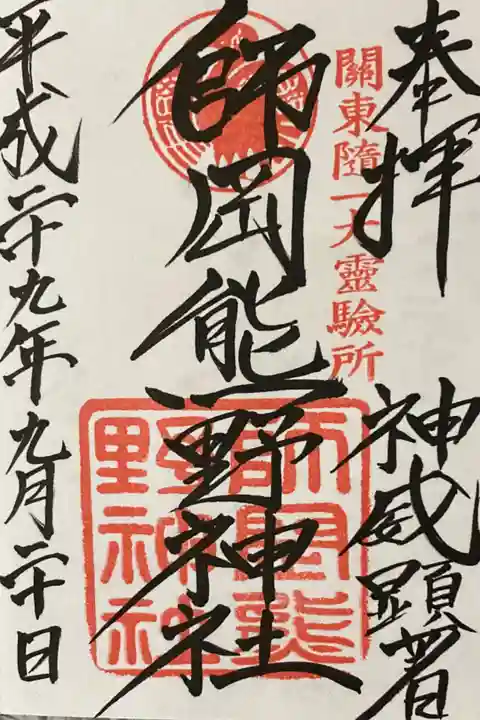 奉拝
神威顕著
關東隨一大靈驗所
師岡熊野神社
師岡熊野神社
平成二十九年九月二十日